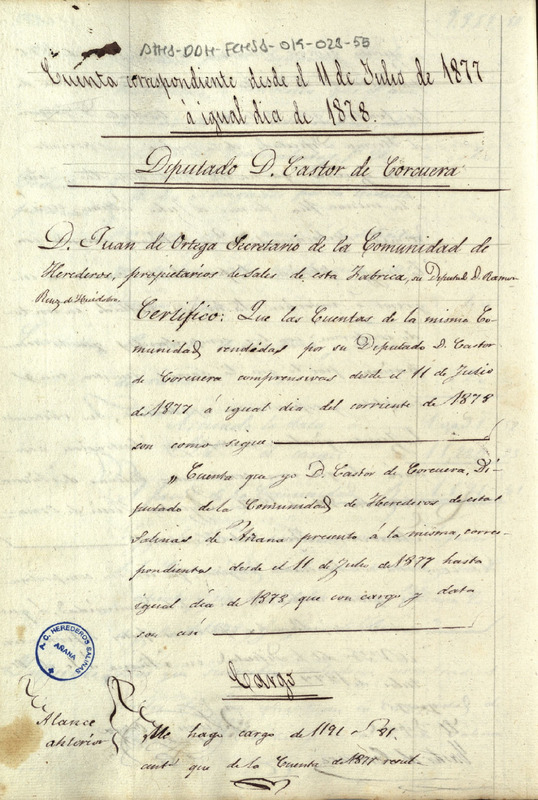 AHS-DDH-FCHSS-014-028-55
Cuenta correspondiente desde el 11 de Julio de 1877
á igual dia de 1878.
Diputado D. Castor de Corcuera
D. Juan de Ortega Secretario de la Comunidad de
Herederos, propietarios de Sales de esta Fabrica, su Diputado D. Ramon
Ruiz de
Certifico: Que las Cuentas de la misma Co-
munidad rendidas por su Diputado D. Castor
de Corcuera comprensivas desde el 11 de Julio
de 1877 á igual dia del corriente de 1878
son como sigue
„Cuenta que yo D. Castor de Corcuera, Di-
putado de la Comunidad de Herederos de estas
Salinas de Añana presento á la misma, corres-
pondientes desde el 11 de Julio de 1877 hasta
igual dia de 1878, que con cargo y data
son asi
A. C. HEREDEROS SALINAS
AÑANA
Cargo
Alance
anterior
Me hago cargo de 1191 81
cent.s que de la Cuenta de 1877 resul-